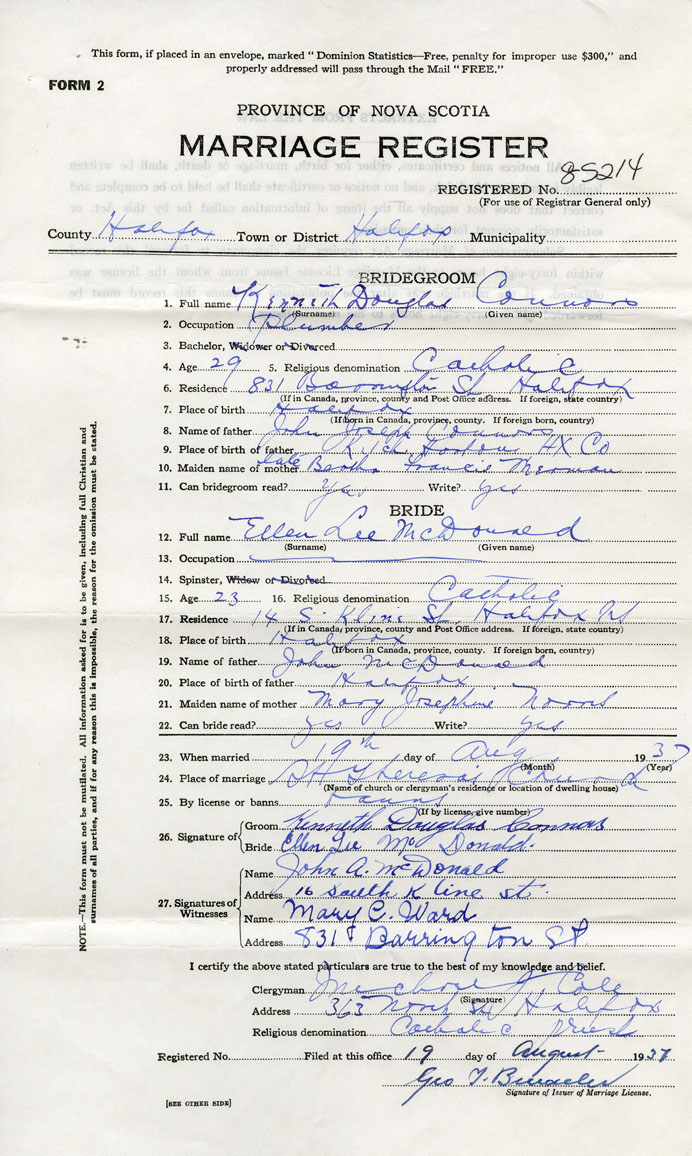 This form, if placed in an envelope, marked "Dominion Statistics—Free, penalty for improper use $300," and
properly addressed will pass through the Mail "FREE."
FORM 2
PROVINCE OF NOVA SCOTIA
MARRIAGE REGISTER
REGISTERED No. 85214
(For use of Registrar General only)
County Halifax Town or District Halifax Municipality
BRIDEGROOM
1. Full name Kenneth Douglas Connors
(Surname) (Given name)
2. Occupation Plumber
3. Bachelor, Widower or Divorced
4. Age 29 5. Religious denomination Catholic
6. Residence 831 Barrington St Halifax
(If in Canada, province, county and Post Office address. If foreign, state country)
7. Place of birth Halifax
(If born in Canada, province, county. If foreign born, country)
8. Name of father John Joseph Connors
9. Place of birth of father Harbour HX Co
10. Maiden name of mother Bertha Francis
11. Can bridegroom read? Yes Write? Yes
BRIDE
12. Full name Ellen Lee McDonald
(Surname) (Given name)
13. Occupation
14. Spinster, Widow or Divorced
15. Age 23 16. Religious denomination Catholic
17. Residence 14 S. Kline St. Halifax NS
(If in Canada, province, county and Post Office address. If foreign, state country)
18. Place of birth Halifax
(If born in Canada, province, county. If foreign born, country)
19. Name of father John McDonald
20. Place of birth of father Halifax
21. Maiden name of mother Mary Josephine
22. Can bride read? yes Write? yes
23. When married 19th day of Aug 1937
(Month) (Year)
24. Place of marriage St Theresa's Church
(Name of church or clergyman's residence or location of dwelling house)
25. By license or banns Banns
(If by license, give number)
26. Signature of Groom Kenneth Douglas Connors
Bride Ellen Lee McDonald.
27. Signatures of Witnesses
Name John A. McDonald
Address 16 South Kline st.
Name Mary C. Ward
Address 831 Barrington St
I certify the above stated particulars are true to the best of my knowledge and belief.
Clergyman
(Signature)
Address 363 North St Halifax
Religious denomination Catholic Priest
Registered No. Filed at this office 19 day of August 1937
Geo T.
Signature of Issuer of Marriage License.
[SEE OTHER SIDE]
NOTE.—This form must not be mutilated. All information asked for is to be given, including full Christian and
surnames of all parties, and if for any reason this is impossible, the reason for the omission must be stated.